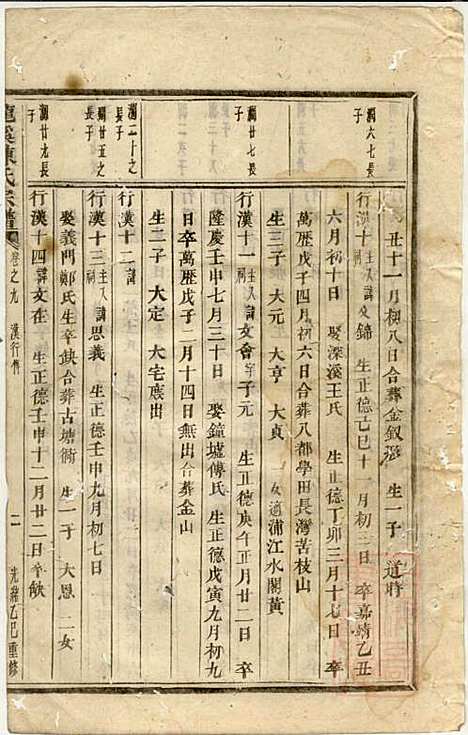 丑十一月初八日合葬金釵形 生一子 道時
潤六七長子
行漢十 主入祠 諱文錦 生正德己巳十 月初二日 卒嘉靖乙丑
六月初十日 娶深溪王氏 生正德丁卯三月十七日 卒
萬歷戊子四月初六日合葬八都學田長灣苦枝山
生三子 大元 大亨 大貞 一女適浦江水閣黃
潤廿七長子
行漢十一 主入祠 諱文會 字子元 生正德庚午正月廿二日 卒
隆慶壬申七月三十日 娶鐘墟傅氏 生正德戊寅九月初九
日卒萬歷戊子二月十四日無出合葬金山
生二子 大定 大宅應出
潤二十之長子
行漢十二 諱
潤廿五之長子
行漢十三 主入祠 諱思義 生正德壬申九月初七日
娶義門鄭氏生卒缺合葬古塘衕 生一子 大恩 二女
潤廿九長子
行漢十四 諱文在 生正德壬申十二月廿二日卒缺
龍溪陳氏宗譜 卷之九 漢行傳 二 光緒乙巳重修